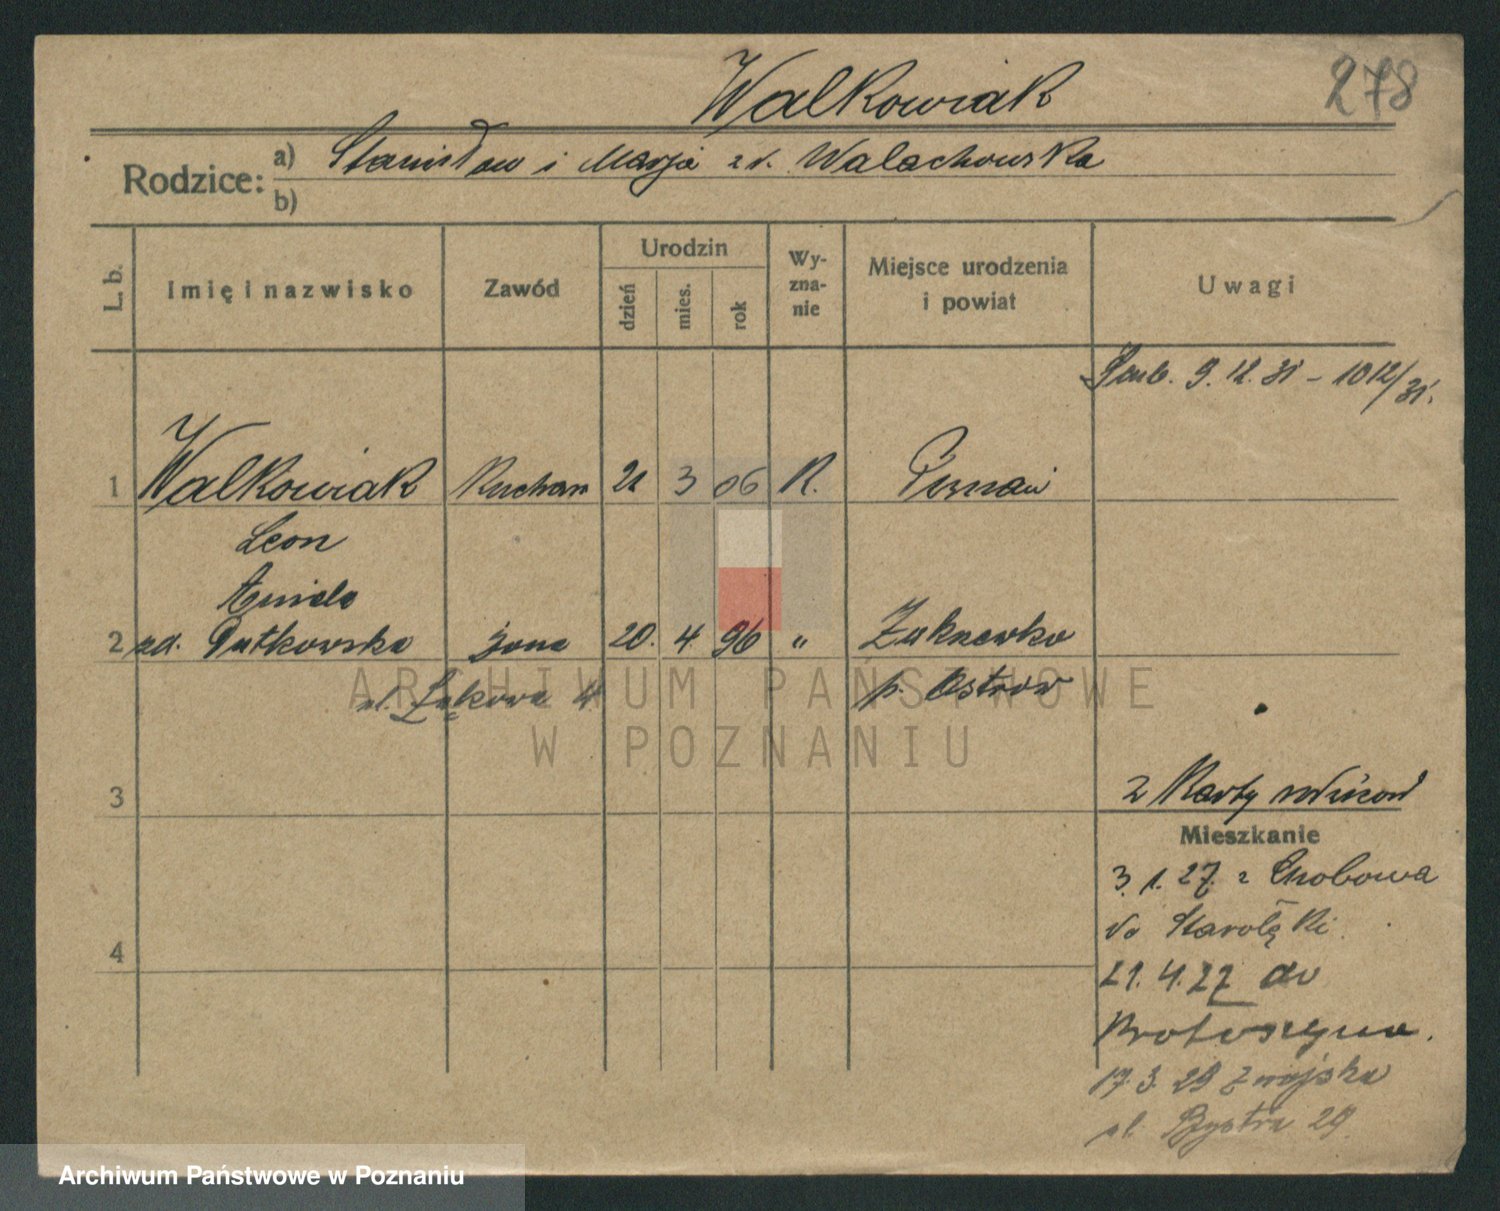 Walkowiak
278
Rodzice:
a) Stanisław i Marja z d. Walachowska
b)
L. b.
Imię i nazwisko
Zawód
Urodzin
dzień
mies.
rok
Wy-
zna-
nie
Miejsce urodzenia
i powiat
Uwagi
9. 12. 31 – 1012/31.
1 Walkowiak 21 3 06 R. Poznań
Leon
Aniela
2 zd. Putkowska żona 20. 4. 96 "
ul. Łąkowa 4 p. Ostrów
3
2 Karty
Mieszkanie
3. 1. 27. z
do Starołęki
4
21. 4. 27 do
Krotoszyna.
17. 3. 29 z wojska
ul. Bystra 29
ARCHIWUM PAŃSTWOWE
W POZNANIU
Archiwum Państwowe w Poznaniu